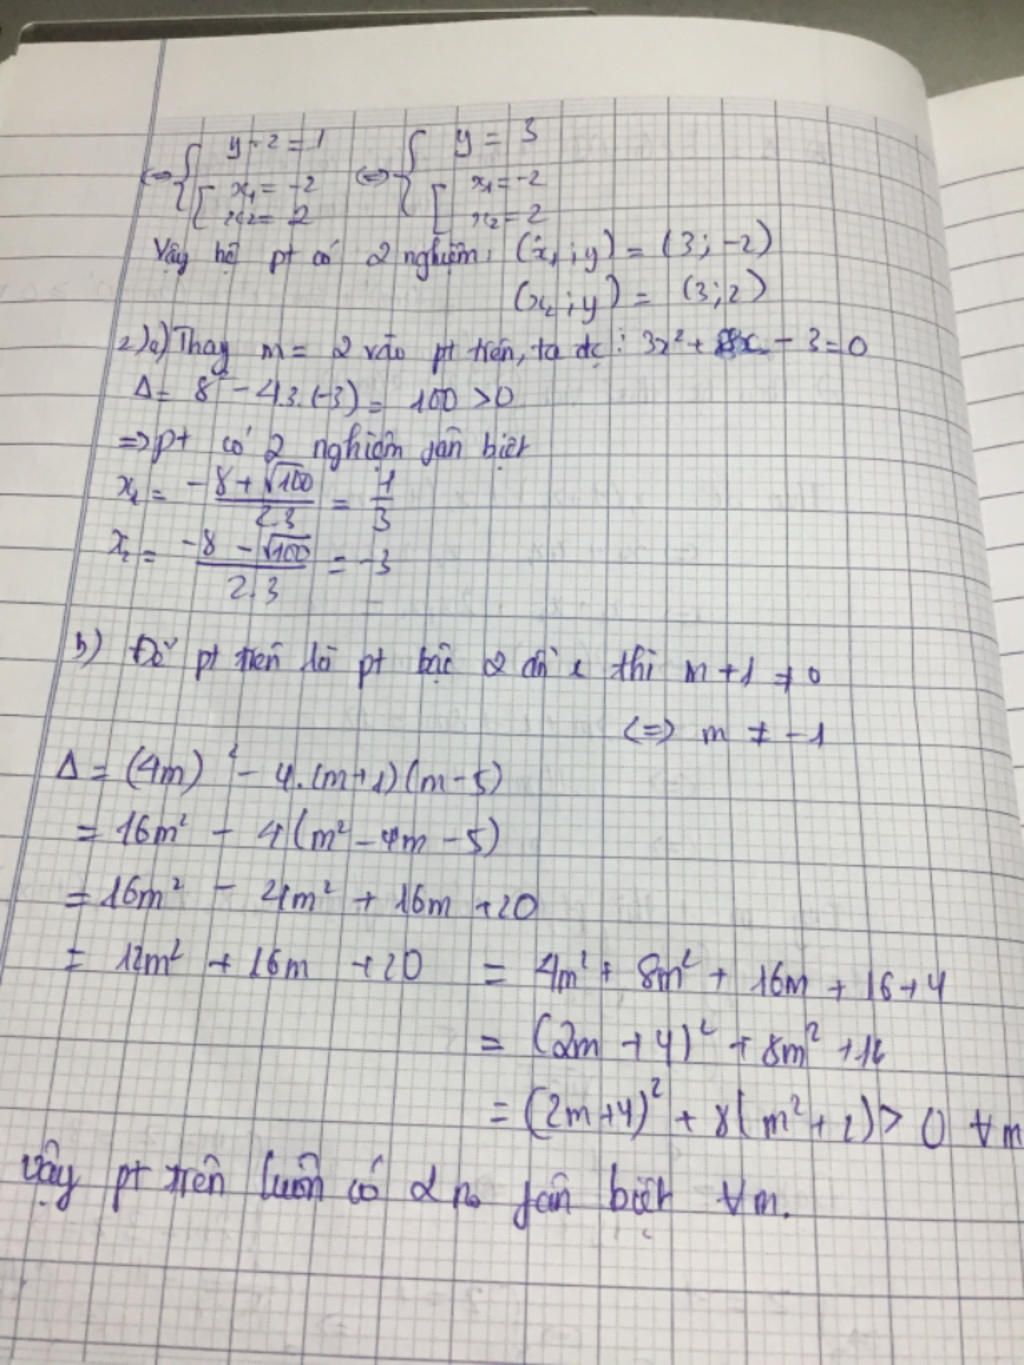 <=> { y - 2 = 1 [ x₁ = -2 x₂ = 2 <=> { y = 3 [ x₁ = -2 x₂ = 2
Vậy hệ pt có 2 nghiệm: (x₁;y) = (3;-2)
(x₂;y) = (3;2)
2)a) Thay m = 2 vào pt trên, ta đc: 3x² + 8x - 3 = 0
Δ = 8² - 4.3.(-3) = 100 > 0
=> pt có 2 nghiệm fân biệt
x₁ = (-8 + √100)/(2.3) = 1/3
x₂ = (-8 - √100)/(2.3) = -3
b) Để pt trên là pt bậc 2 đối x thì m + 1 ≠ 0
<=> m ≠ -1
Δ = (4m)² - 4.(m+1)(m-5)
= 16m² - 4(m² - 4m - 5)
= 16m² - 4m² + 16m + 20
= 12m² + 16m + 20 = 4m² + 8m² + 16m + 16 + 4
= (2m + 4)² + 8m² + 16
= (2m+4)² + 8(m² + 2) > 0 ∀m
Vậy pt trên luôn có 2 no fân biệt ∀m.